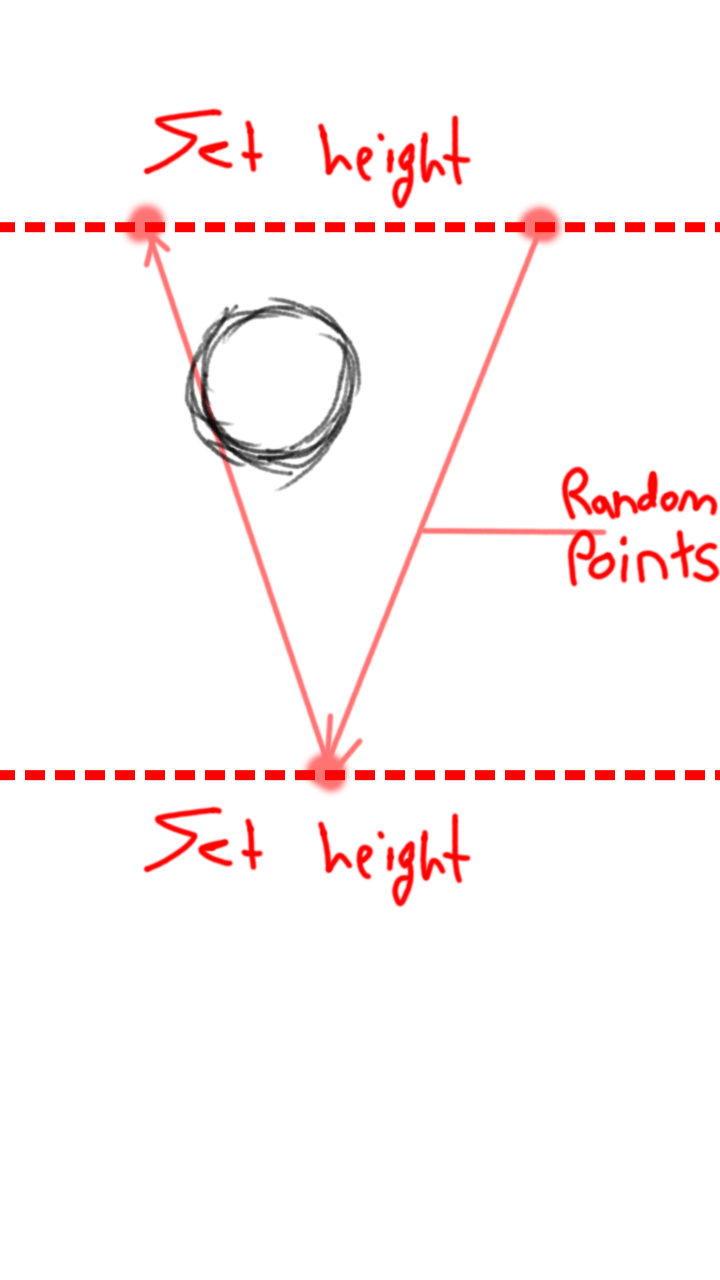 Set height
Random
Points
Set height